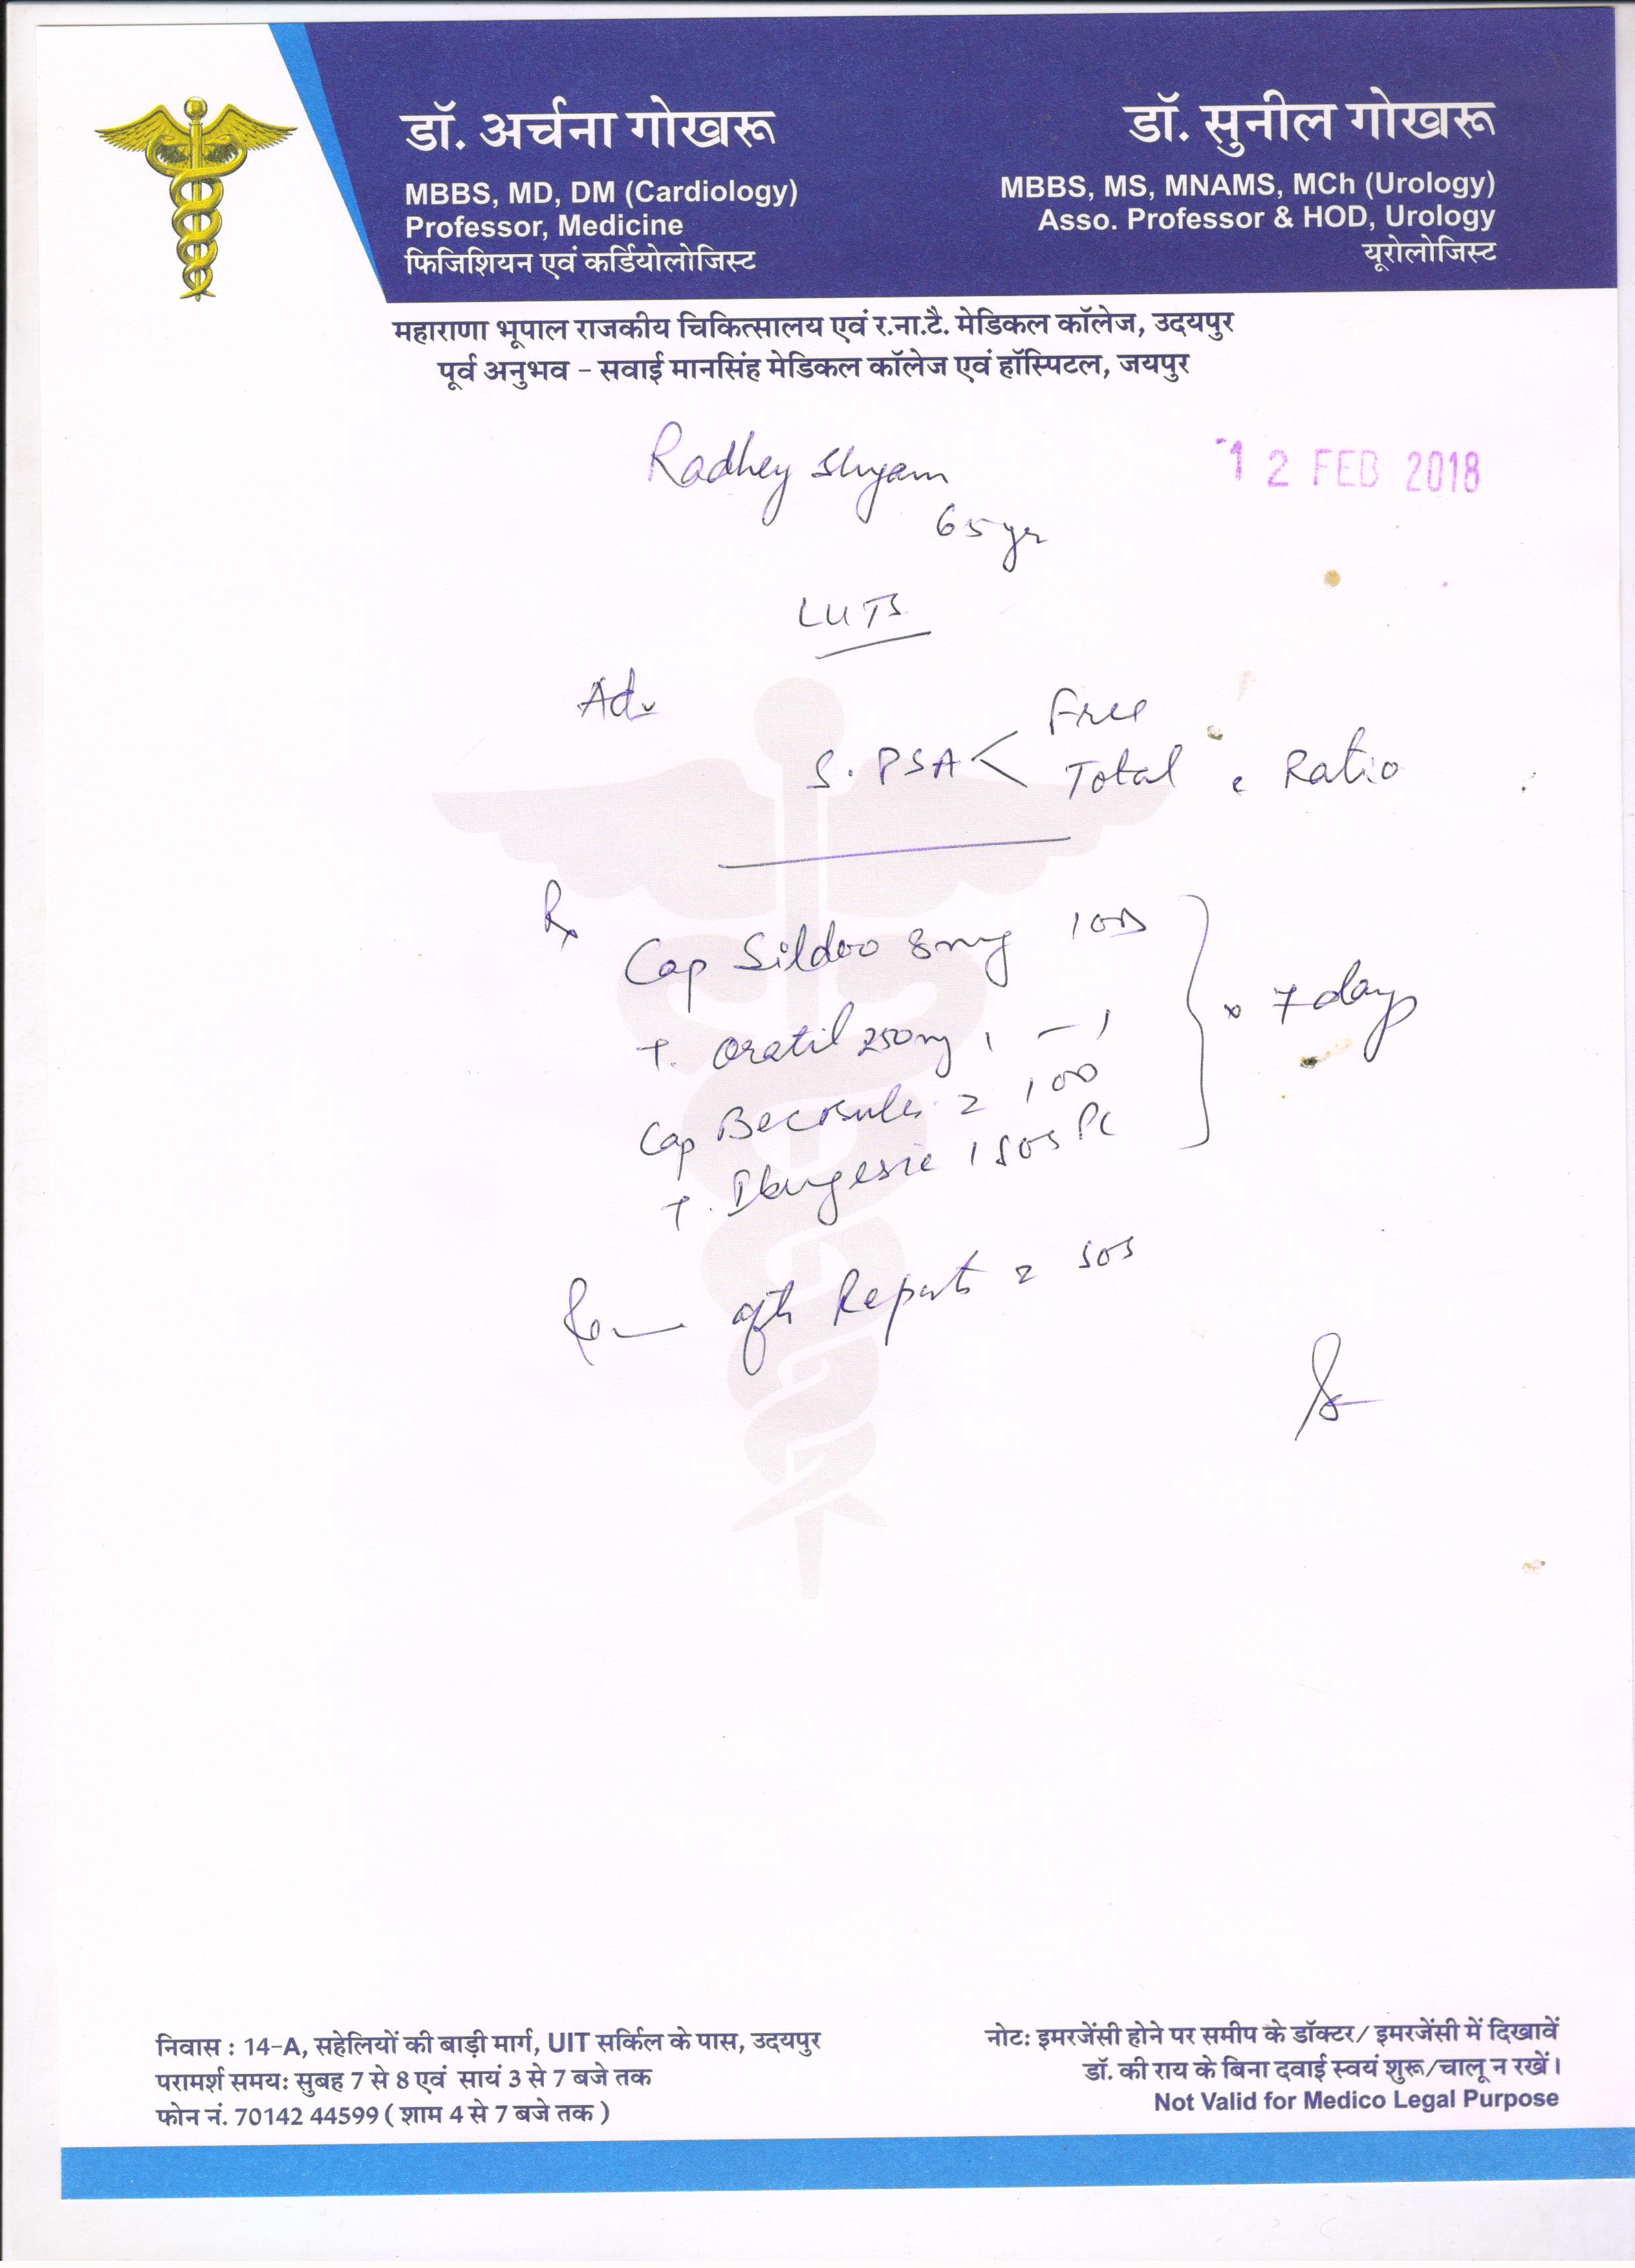 डॉ. अर्चना गोखरू
MBBS, MD, DM (Cardiology)
Professor, Medicine
फिजिशियन एवं कर्डियोलोजिस्ट
डॉ. सुनील गोखरू
MBBS, MS, MNAMS, MCh (Urology)
Asso. Professor & HOD, Urology
यूरोलोजिस्ट
महाराणा भूपाल राजकीय चिकित्सालय एवं र.ना.टै. मेडिकल कॉलेज, उदयपुर
पूर्व अनुभव – सवाई मानसिंह मेडिकल कॉलेज एवं हॉस्पिटल, जयपुर
Radhey Shyam
12 FEB 2018
65 yr
LUTS
Adv
S. PSA < Free
Total c Ratio
Rx
Cap Sildoo 8mg 1 OD
T. Oratil 250mg 1 — 1
Cap Becosules Z 1 OD
T. Ibugesic 1 SOS PC
x 7 days
Reports SOS
निवास : 14-A, सहेलियों की बाड़ी मार्ग, UIT सर्किल के पास, उदयपुर
परामर्श समयः सुबह 7 से 8 एवं सायं 3 से 7 बजे तक
फोन नं. 70142 44599 ( शाम 4 से 7 बजे तक )
नोटः इमरजेंसी होने पर समीप के डॉक्टर/ इमरजेंसी में दिखावें
डॉ. की राय के बिना दवाई स्वयं शुरू/चालू न रखें।
Not Valid for Medico Legal Purpose